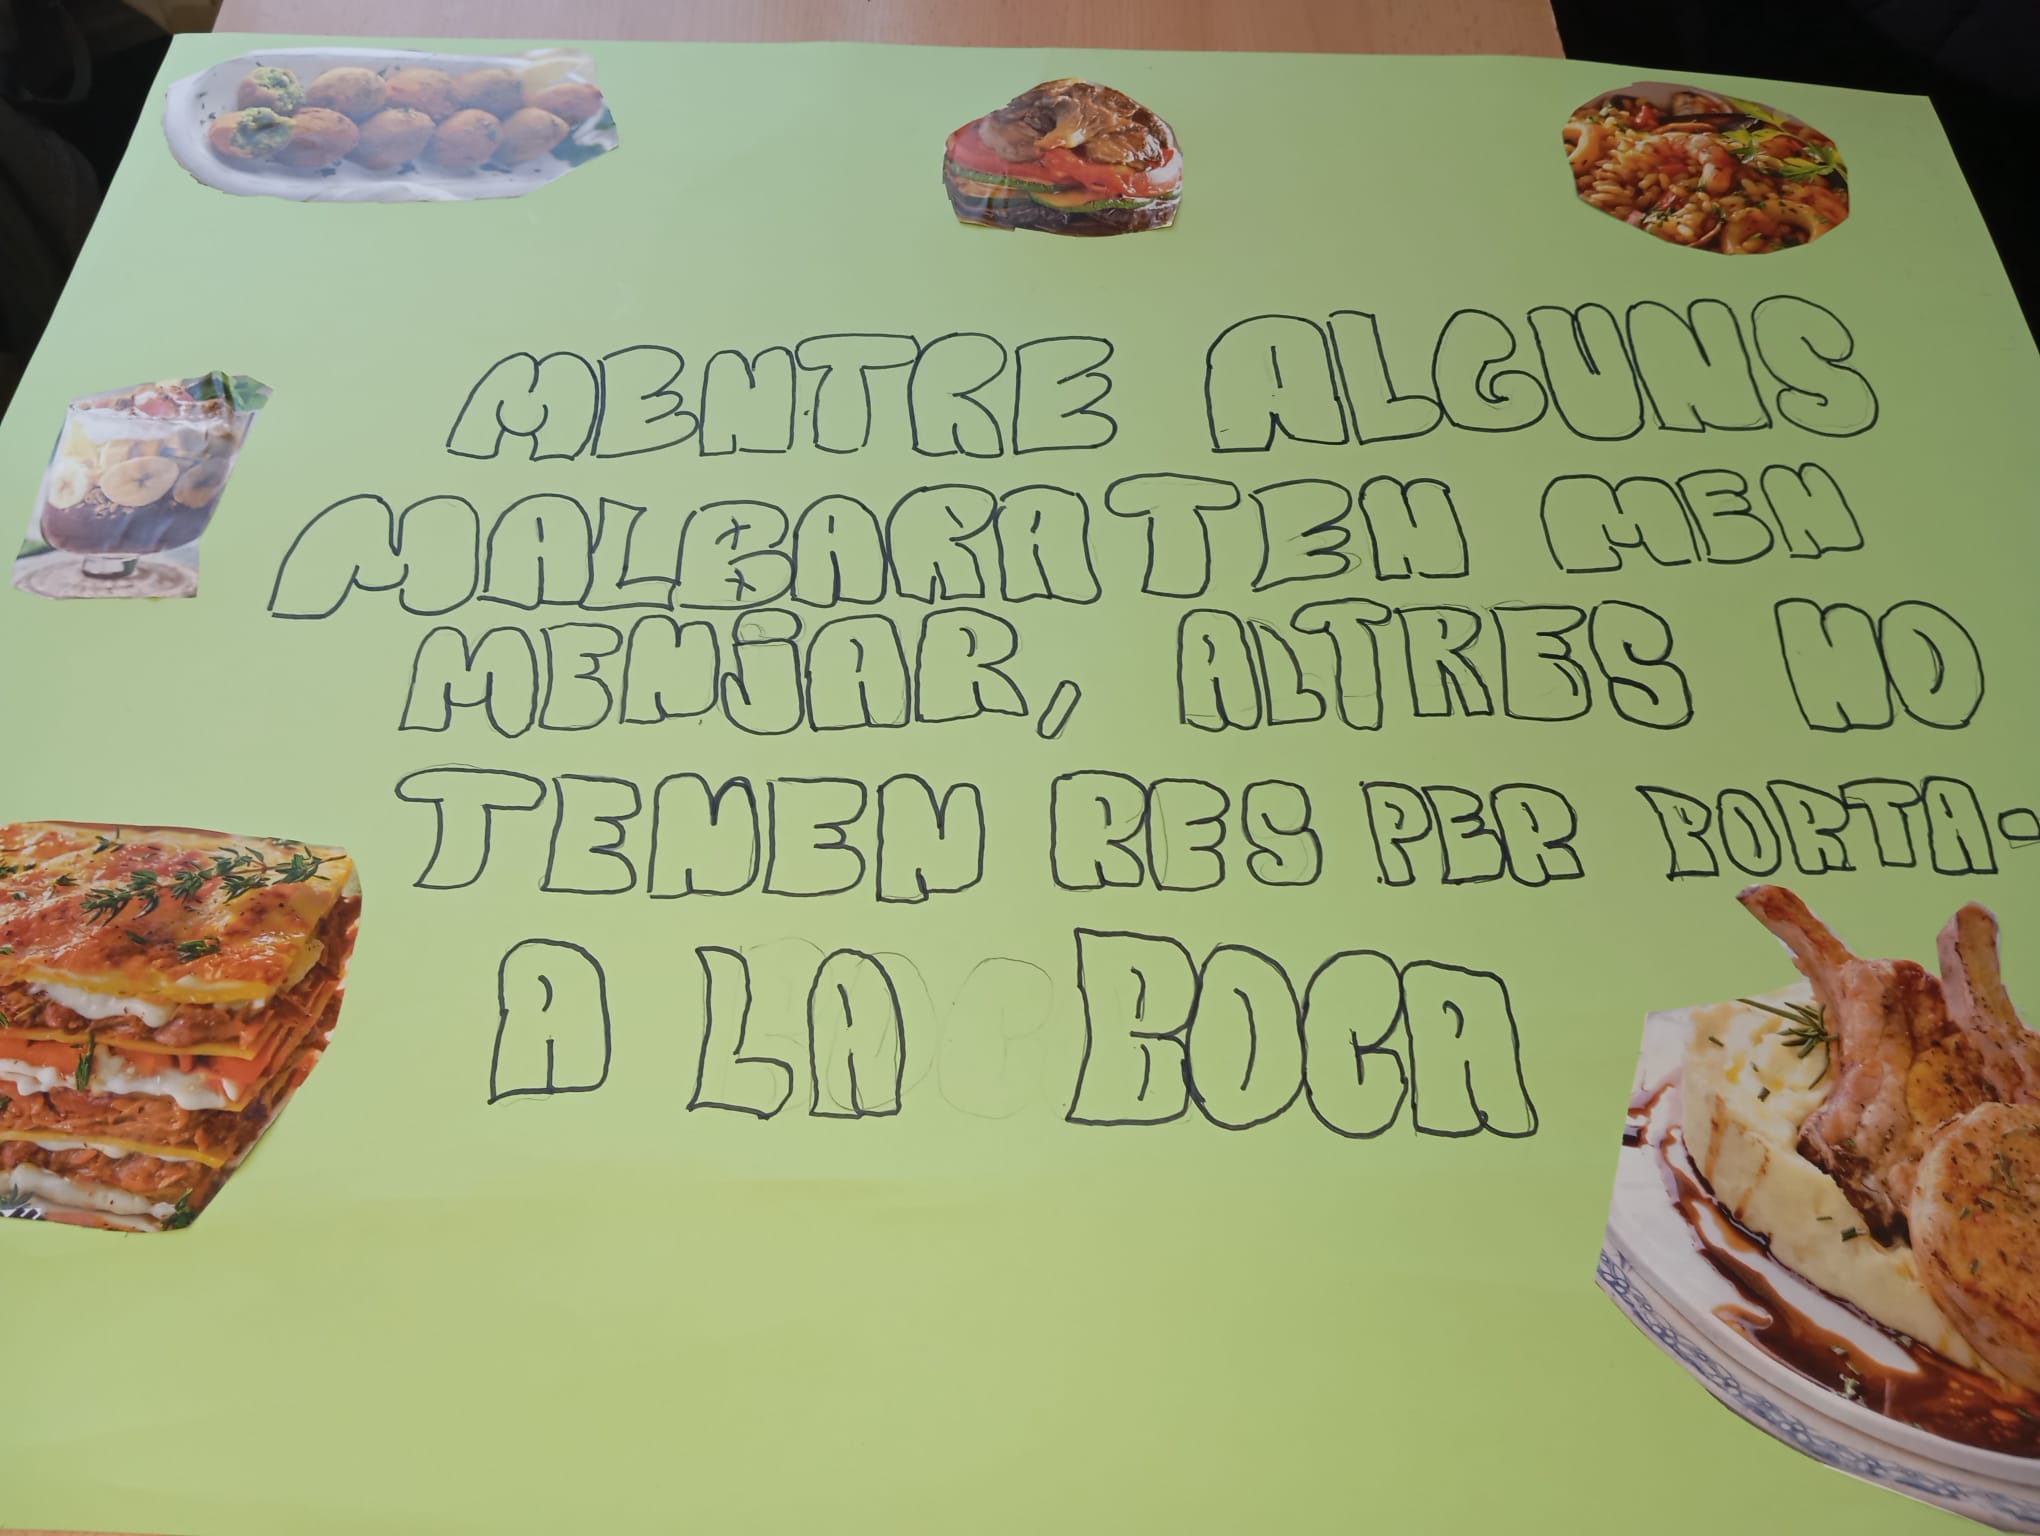 MENTRE ALGUNS
MALBARATEN MEN
MENJAR, ALTRES NO
TENEN RES PER PORTA-
A LA BOCA